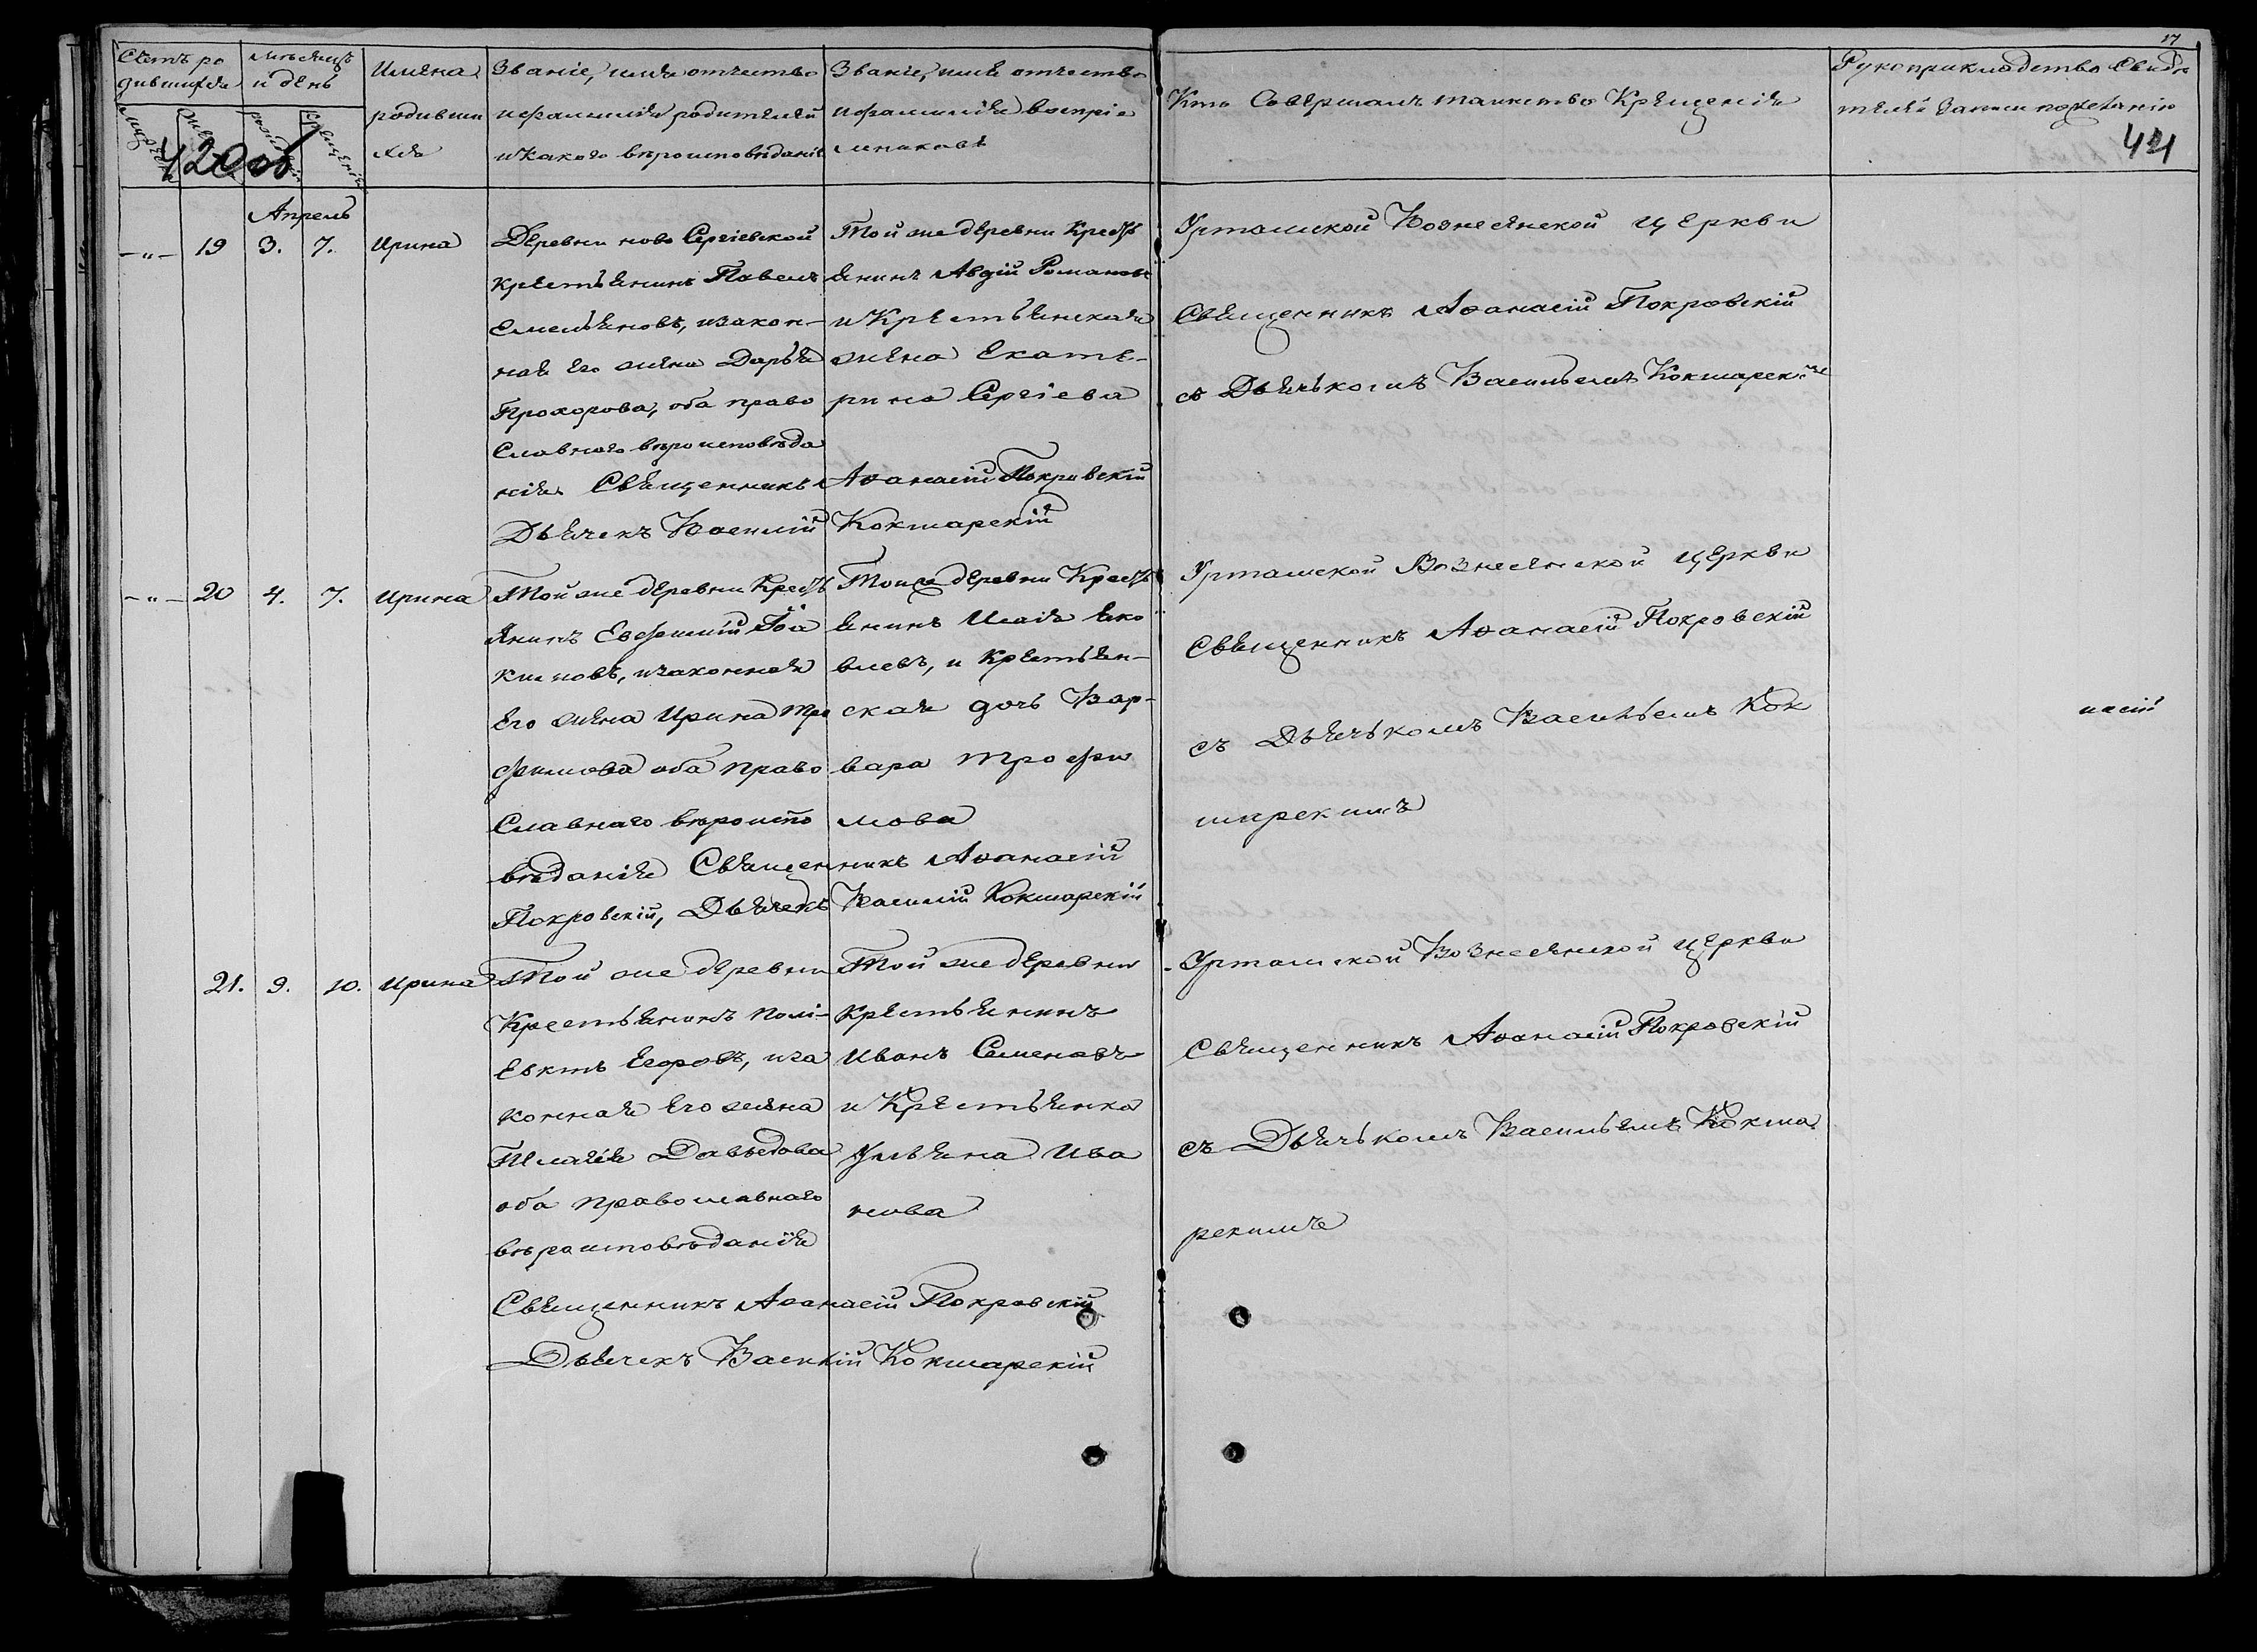 17
Счетъ ро
дившихся
мѣсяцъ
и день
Имяна
родивши
хся
Званіе, имя отчество
и фамилія родителей
и какого вѣроисповѣданія
Званіе, имя отчество
и фамилія воспріе
мниковъ
Кто Совершалъ таинство Крещенія
Рукоприкладство Свидѣ
телей записи по желанію
42 об
44
Апрель
-"- 19 3. 7. Ирина
Деревни ново Сергіевской
крестьянинъ Павелъ
Емельяновъ, и закон-
ная его жена Дарья
Прохорова, оба право
Славнаго вѣроисповѣда
нія Священникъ Аѳанасій Покровскій
Дьячекъ Василій Кокшарскій
Той же деревни Крест
янинъ Авдій Романовъ
и Крестьянская
жена Екате-
рина Сергіева
Урташской Вознесенской церкви
Священникъ Аѳанасій Покровскій
съ Дьячькомъ Васильемъ Кокшарскимъ
-"- 20 4. 7. Ирина
Той же деревни Крест
янинъ Евфимій Іоа
кимовъ, и законная
Его жена Ирина Тро
фимова оба право
Славнаго вѣроиспо
вѣданія Священникъ Аѳанасій
Покровскій, Дьячекъ Василій Кокшарскій
Той же деревни Крест
янинъ Исаія Яко
влевъ, и Крестьян-
ская дочь Вар-
вара Трофи
мова
Урташской Вознесенской церкви
Священникъ Аѳанасій Покровскій
съ Дьячькомъ Васильемъ Кок
шарскимъ
насій
21. 9. 10. Ирина
Той же деревни
Крестьянинъ Полі-
евктъ Егоровъ, и за
конная Его жена
Давыдова
оба православнаго
вѣроисповѣданія
Священникъ Аѳанасій Покровскій
Дьячекъ Василій Кокшарскій
Той же деревни
Крестьянинъ
Иванъ Семеновъ
и Крестьянка
Ульяна Ива
нова
Урташской Вознесенской церкви
Священникъ Аѳанасій Покровскій
съ Дьячькомъ Васильемъ Кокша
рскимъ